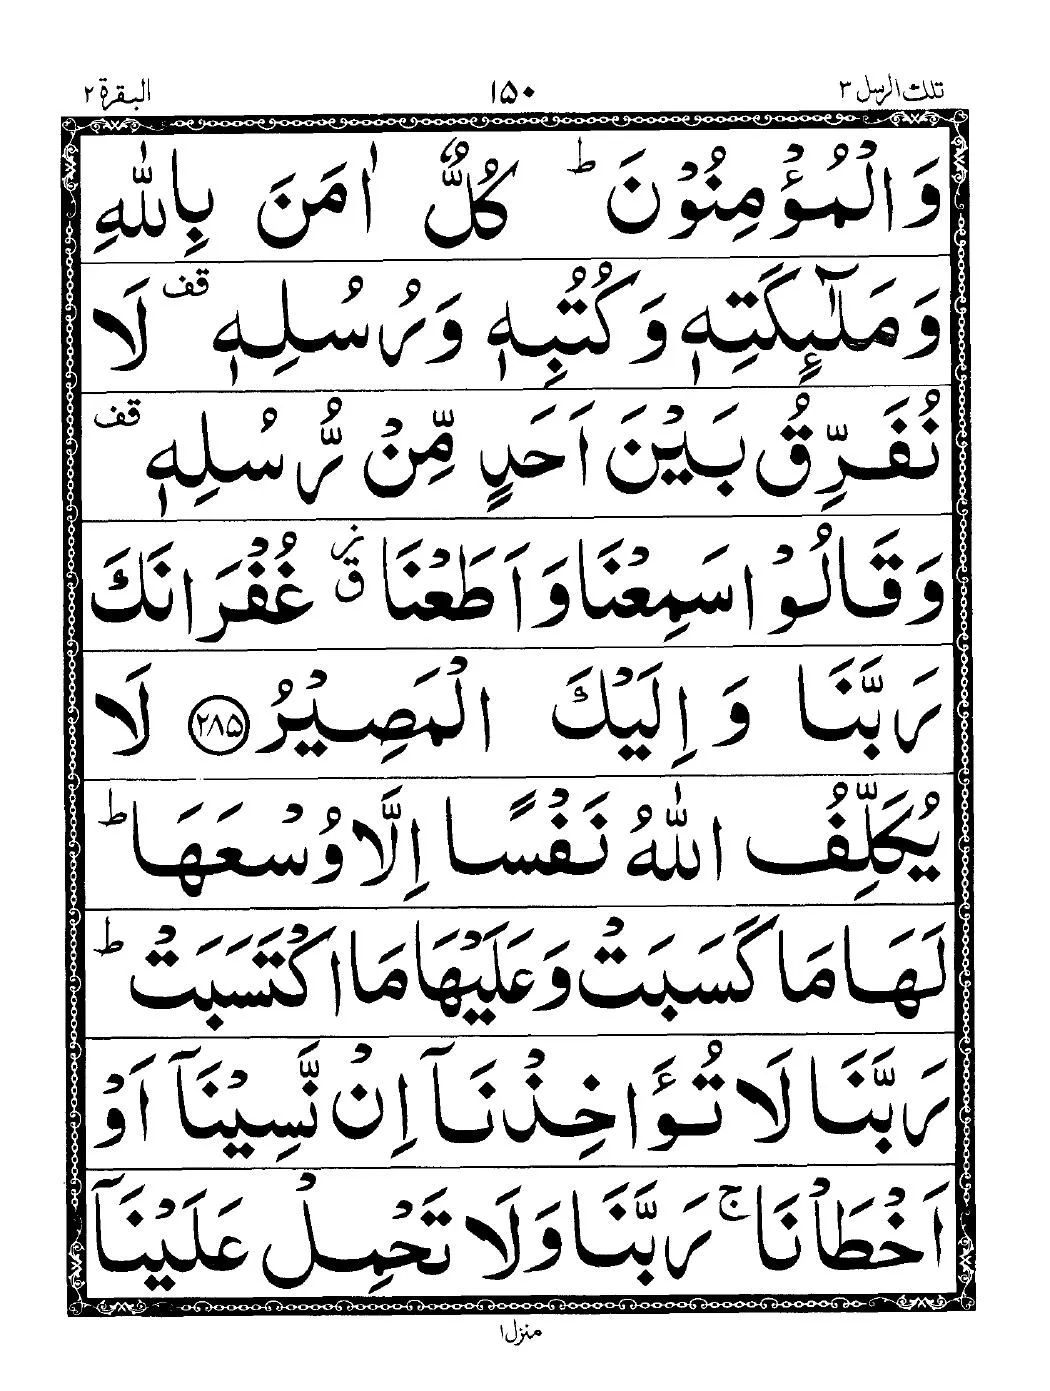 تلك الرسل ٣
١٥٠
البقرة ٢
وَالْمُؤْمِنُوْنَ ؕ كُلٌّ اٰمَنَ بِاللّٰهِ
وَمَلٰٓئِكَتِهٖ وَكُتُبِهٖ وَرُسُلِهٖ قف لَا
نُفَرِّقُ بَيْنَ اَحَدٍ مِّنْ رُّسُلِهٖ قف
وَقَالُوْا سَمِعْنَا وَاَطَعْنَا ق ز غُفْرَانَكَ
رَبَّنَا وَاِلَيْكَ الْمَصِيْرُ ﴿٢٨٥﴾ لَا
يُكَلِّفُ اللّٰهُ نَفْسًا اِلَّا وُسْعَهَا ؕ
لَهَا مَا كَسَبَتْ وَعَلَيْهَا مَا اكْتَسَبَتْ ؕ
رَبَّنَا لَا تُؤَاخِذْنَآ اِنْ نَّسِيْنَآ اَوْ
اَخْطَاْنَا ۚ رَبَّنَا وَلَا تَحْمِلْ عَلَيْنَآ
منزل ١